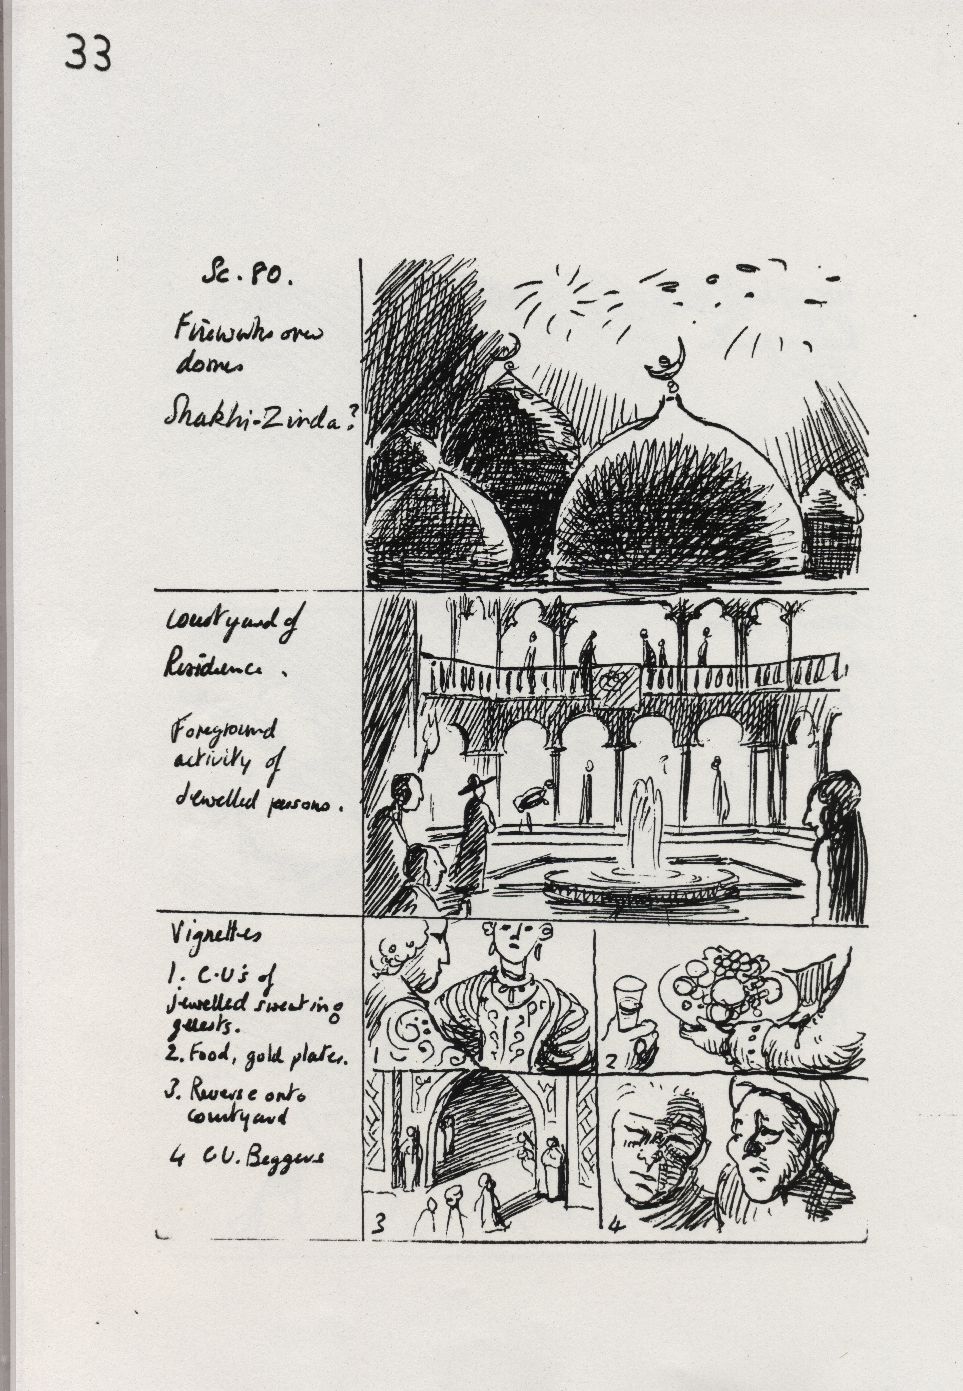 33
Sc. 80.
Fireworks over
domes
Shakhi-Zinda?
Courtyard of
Residence.
Foreground
activity of
Jewelled persons.
Vignettes
1. C-U's of
Jewelled sweating
guests.
2. Food, gold plates.
3. Reverse onto
courtyard
4 CU. Beggers
1
2
3
4